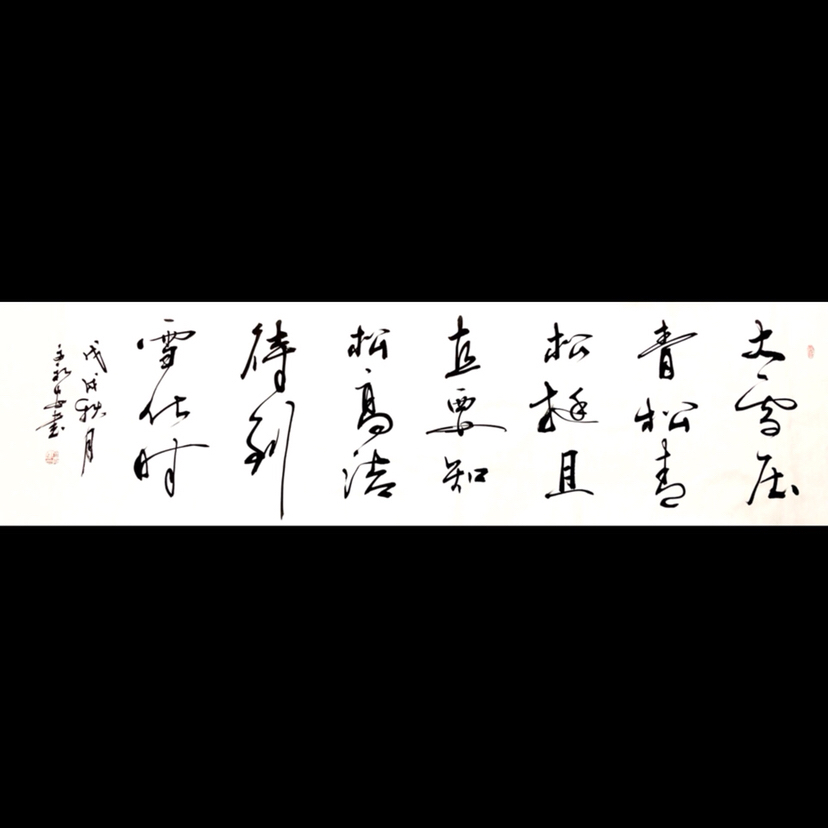 大雪压
青松青
松挺且
直要知
松高洁
待到
雪化时
戊戌秋月
书